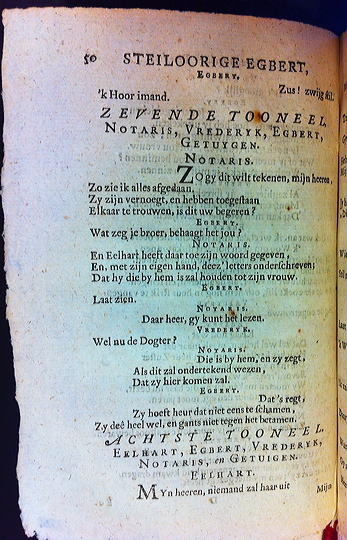 50 STEILOORIGE EGBERT,
EGBERT.
Zus! zwijg stil.
'k Hoor imand.
ZEVENDE TOONEEL.
NOTARIS, VREDERYK, EGBERT,
GETUYGEN.
NOTARIS.
ZO gy dit wilt tekenen, mijn heeren,
Zo zie ik alles afgedaan.
Zy zijn vernoegt, en hebben toegestaan
Elkaar te trouwen, is dit uw begeren?
EGBERT.
Wat zeg je broer, behaagt het jou?
NOTARIS.
En Eelhart heeft daar toe zijn woord gegeven,
En, met zijn eigen hand, deez' letters onderschreven;
Dat hy die by hem is zal houden tot zijn vrouw.
EGBERT.
Laat zien.
NOTARIS.
Daar heer, gy kunt het lezen.
VREDERYK.
Wel nu de Dogter?
NOTARIS.
Die is by hem, en zy zegt,
Als dit zal ondertekend wezen,
Dat zy hier komen zal.
EGBERT.
Dat's regt,
Zy hoeft heur dat niet eens te schamen,
Zy deê heel wel, en gants niet tegen het betamen.
ACHTSTE TOONEEL.
EELHART, EGBERT, VREDERYK,
NOTARIS, en GETUIGEN.
EELHART.
MYn heeren, niemand zal haar uit
Mijn